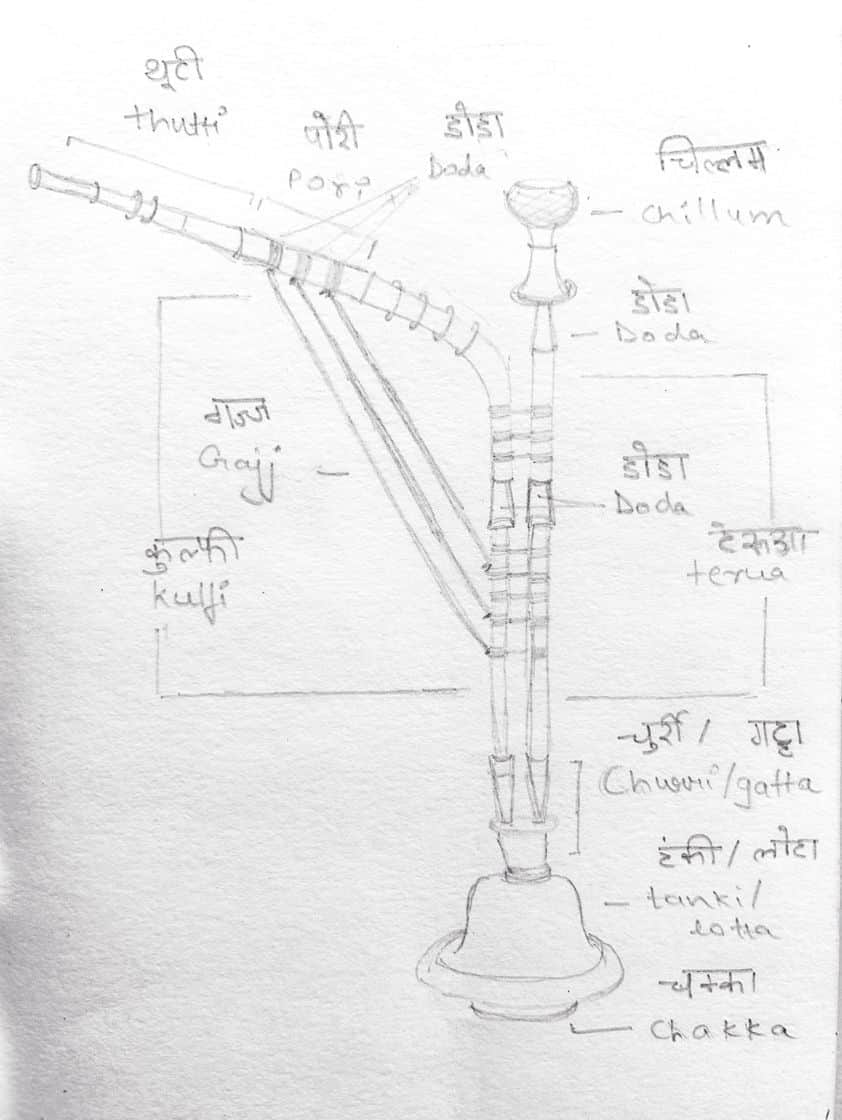 थूटी
thutti
पोरी
pori
डोडा
Doda
चिल्लम
chillum
डोडा
Doda
गज्ज
Gajj
डोडा
Doda
कुल्फी
kulfi
टेरूआ
terua
चुर्री / गट्टा
Churri/gatta
टंकी / लोटा
tanki/
lotta
चक्का
Chakka